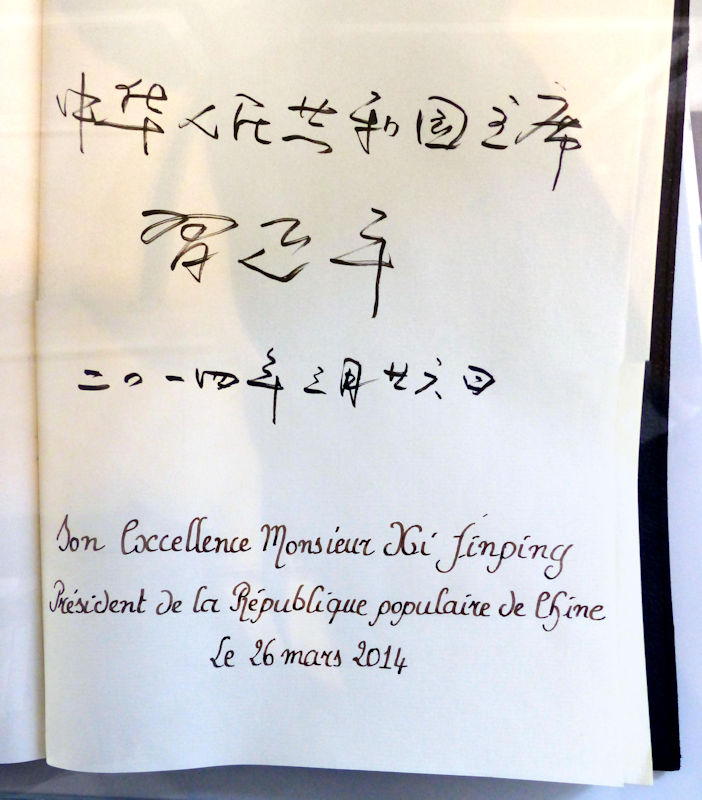 中华人民共和国主席
习近平
二〇一四年三月廿六日
Son Excellence Monsieur Xi Jinping
Président de la République populaire de Chine
Le 26 mars 2014